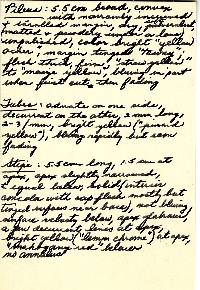 Pileus: 5.5 cm broad, convex
with narrowly incurved
& involled margin, dry, subviscid,
matted & powdery
color bright "yellow
ocher", margin tinged "
flesh thick, firm, "citrus yellow"
to "maize yellow", bluing in part
when first cut, then fading
Tubes: adnate on one side,
decurrent on the other, 3 mm long
2-3/mm, bright yellow ("
yellow"), bluing rapidly but soon
fading
Stipe: 5.5 cm long, 1.5 cm at
apex, apex slightly narrowed,
& equal below, solid, interior
concolor with cap flesh mostly but
tinged near base, not bluing,
surface velvety below, apex glabrous,
a few decurrent lines at apex,
bright yellow ("lemon chrome") at apex,
"mahogany red" below
no annulus